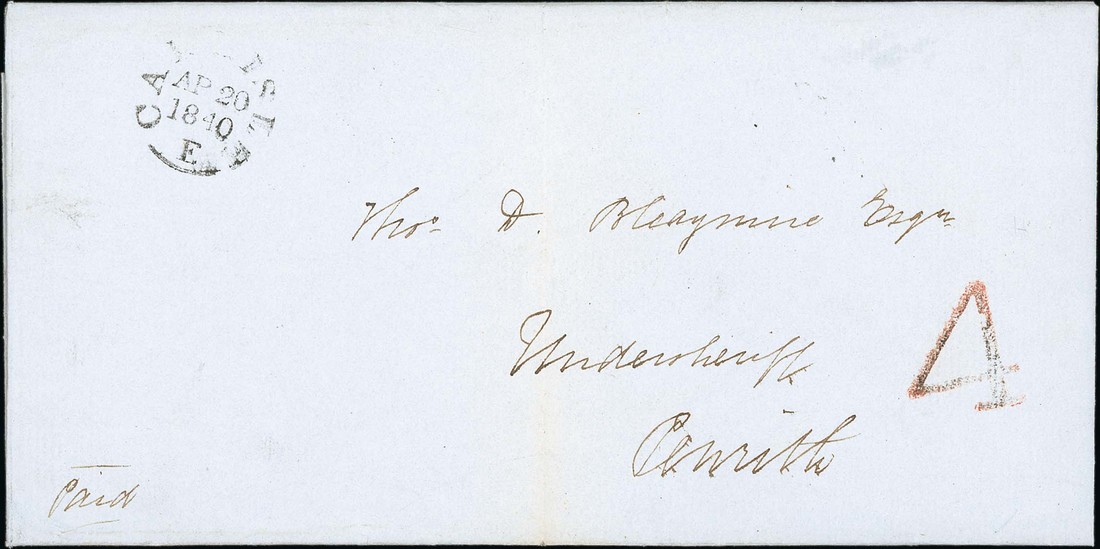 CARLISLE
AP 20
1840
E
Thos. D. Bleaymire Esqr
4
Undersheriff
Penrith
Paid